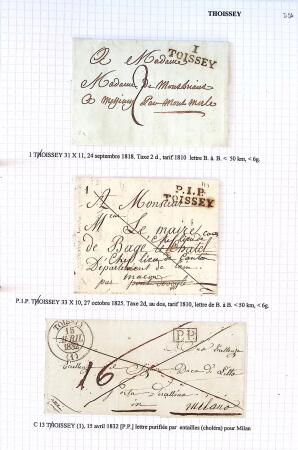 THOISSEY
1
TOISSEY
A Madame
Madame de
a
par mont merle
1 THOISSEY 31 X 11, 24 septembre 1818. Taxe 2 d, tarif 1810 lettre B. à B. < 50 km, < 6g.
P.1.P.
TOISSEY
A Monsieur
Le maire
de Bagé le Chatel
Chef lieu de Canton
Département de l'ain
par
macon
P.1.P. THOISSEY 33 X 10, 27 octobre 1825. Taxe 2d, au dos, tarif 1810, lettre de B. à B. < 50 km, < 6g.
TOISSEY
15
AVRIL
1832
(1)
P.P.
16
milano
C 13 THOISSEY (1), 15 avril 1832 [P.P.] lettre purifiée par entailles (choléra) pour Milan